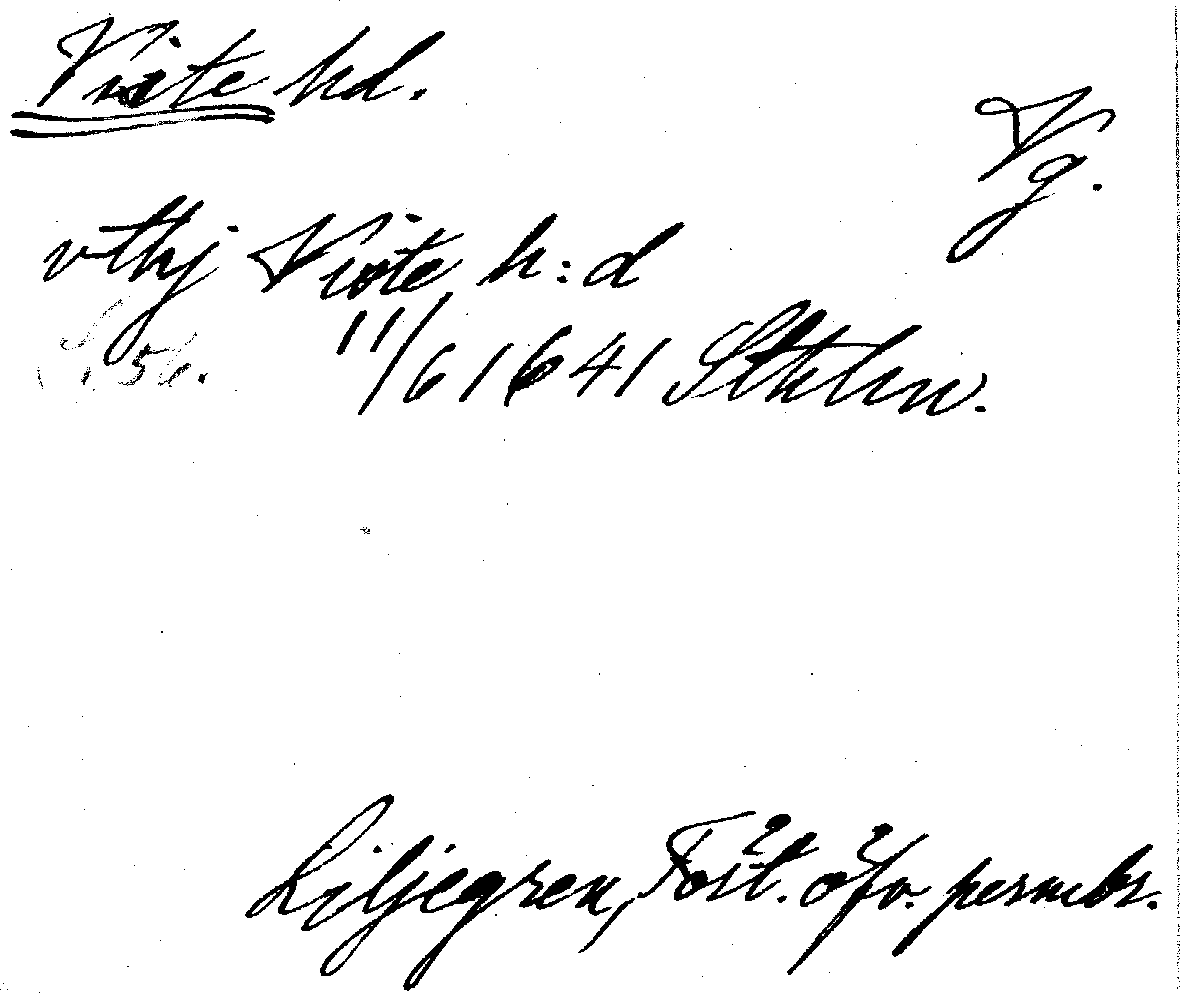 Viste hd.
Vg.
vthj Viste h:d
S. 56. 11/6 1641 Sthlm.
Liljegren, Fört. öfv. permbr.